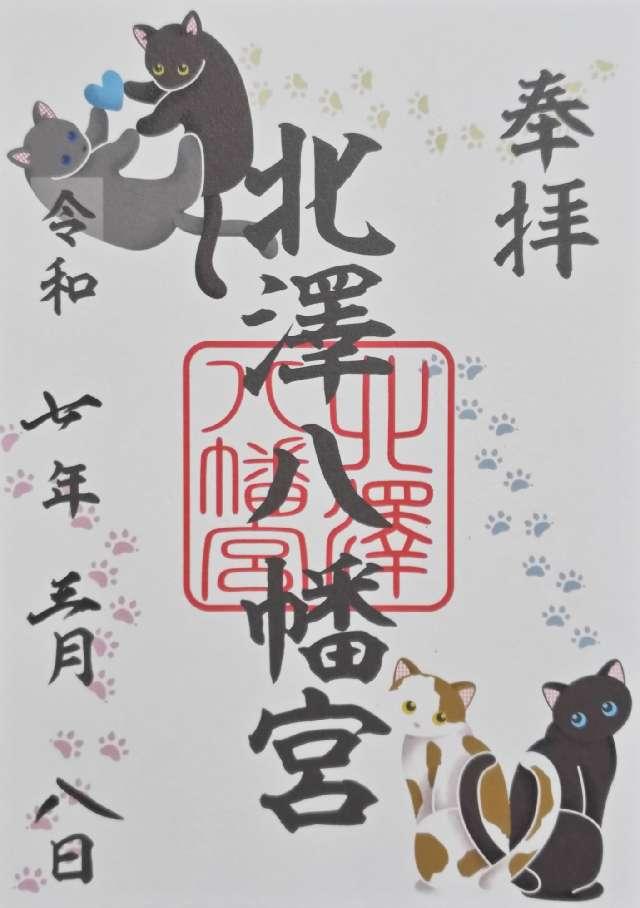 奉拝
北澤八幡宮
北澤
八幡宮
令和 七年 三月 八日